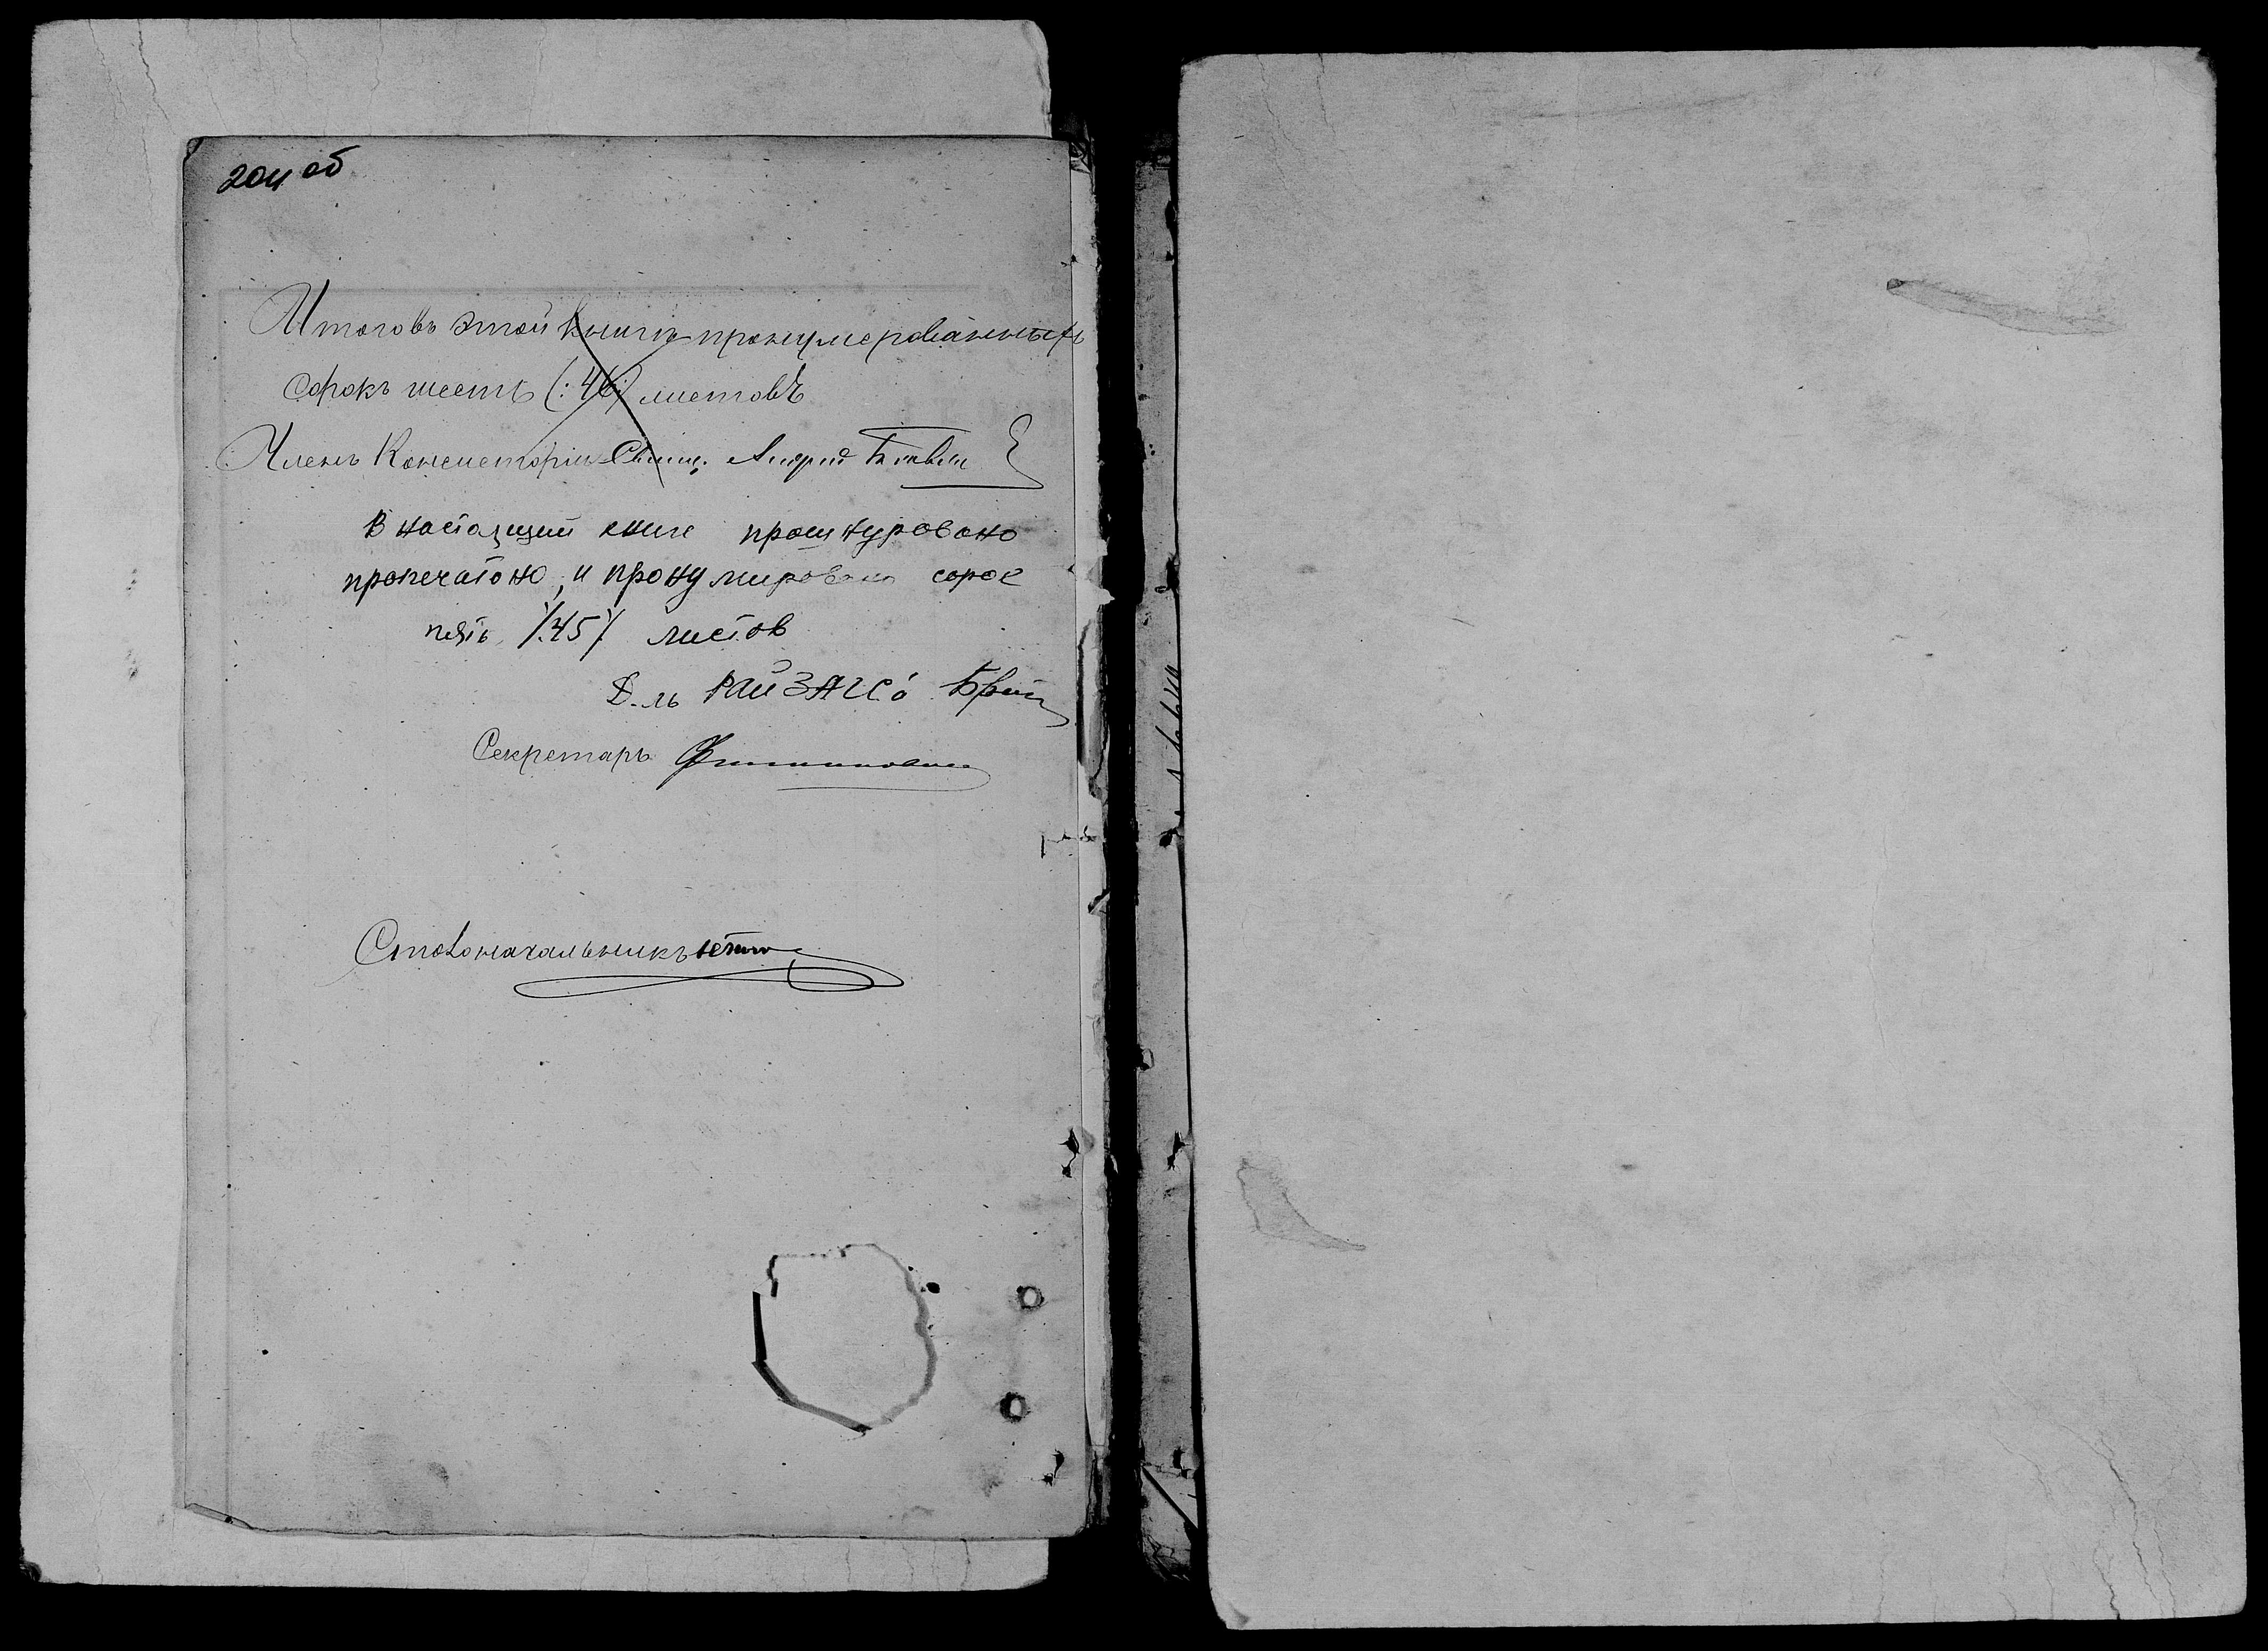 204 об
Итоговъ этой книги пронумерованныхъ
сорокъ шесть (:46:) листовъ
Членъ Консисторіи Свящ. Андрей
В настоящий книге прошнуровано
пропечатано, и пронумировано сорок
пять /:45:/ листов
Д-ль РАЙЗАГСа
Секретарь
Столоначальникъ